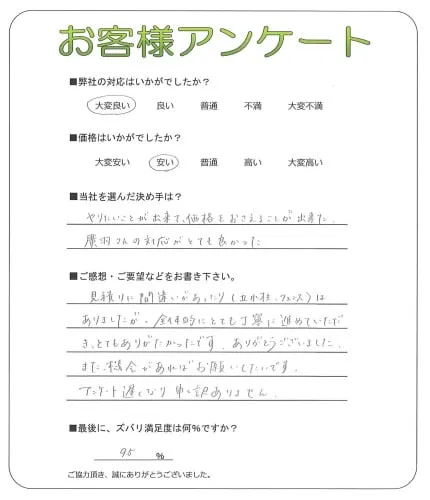 お客様アンケート
■弊社の対応はいかがでしたか？
大変良い 良い 普通 不満 大変不満
■価格はいかがでしたか？
大変安い 安い 普通 高い 大変高い
■当社を選んだ決め手は？
やりたいことが出来て、価格をおさえることが出来た。
さんの対応がとても良かった
■ご感想・ご要望などをお書き下さい。
見積りに間違いがあったり（立水栓、フェンス）は
ありましたが、全体的にとても丁寧に進めていただ
き、とてもありがたかったです。ありがとうございました。
また、機会があればお願いしたいです。
アンケート遅くなり申し訳ありません。
■最後に、ズバリ満足度は何%ですか？
95 %
ご協力頂き、誠にありがとうございました。